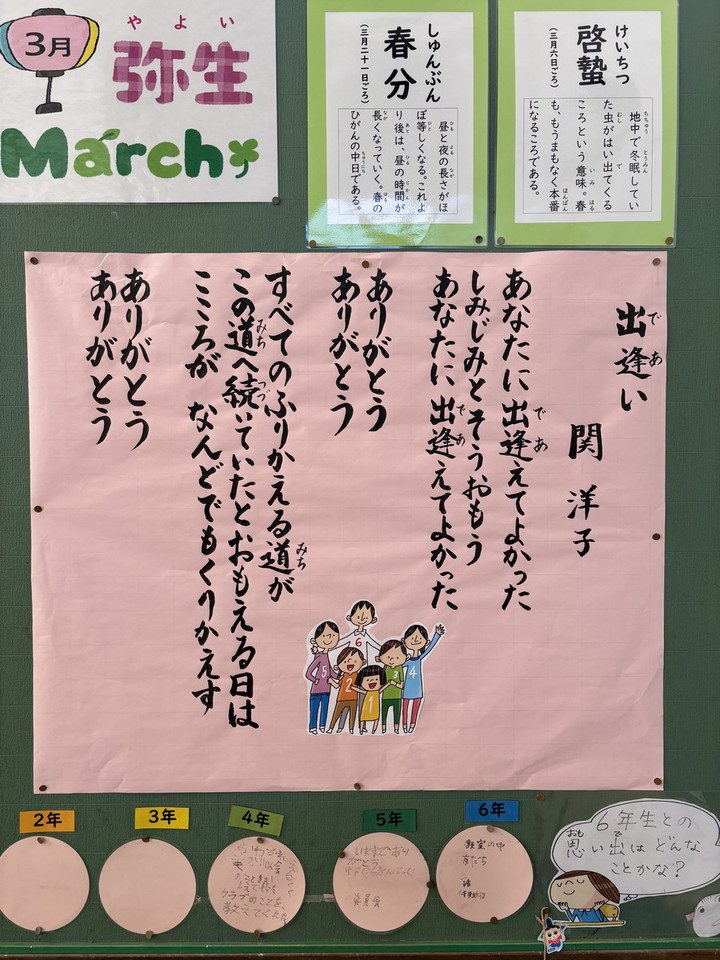 3月
やよい
弥生
March
しゅんぶん
春分
(三月二十一日ごろ)
昼と夜の長さがほ
ぼ等しくなる。これよ
り後は、昼の時間が
長くなっていく。春の
ひがんの中日である。
けいちつ
啓蟄
(三月六日ごろ)
地中で冬眠してい
た虫がはい出てくる
ころという意味。春
も、もうまもなく本番
になるころである。
出逢い
関 洋子
あなたに出逢えてよかった
しみじみとそうおもう
あなたに出逢えてよかった
ありがとう
ありがとう
すべてのふりかえる道が
この道へ続いていたとおもえる日は
こころが なんどでもくりかえす
ありがとう
ありがとう
5
6
2
1
3
4
2年
3年
4年
5年
6年
クラブのことを
教えてくれた
いままでおり
がとう
教室の中
友だち
6年生との
思い出はどんな
ことかな?